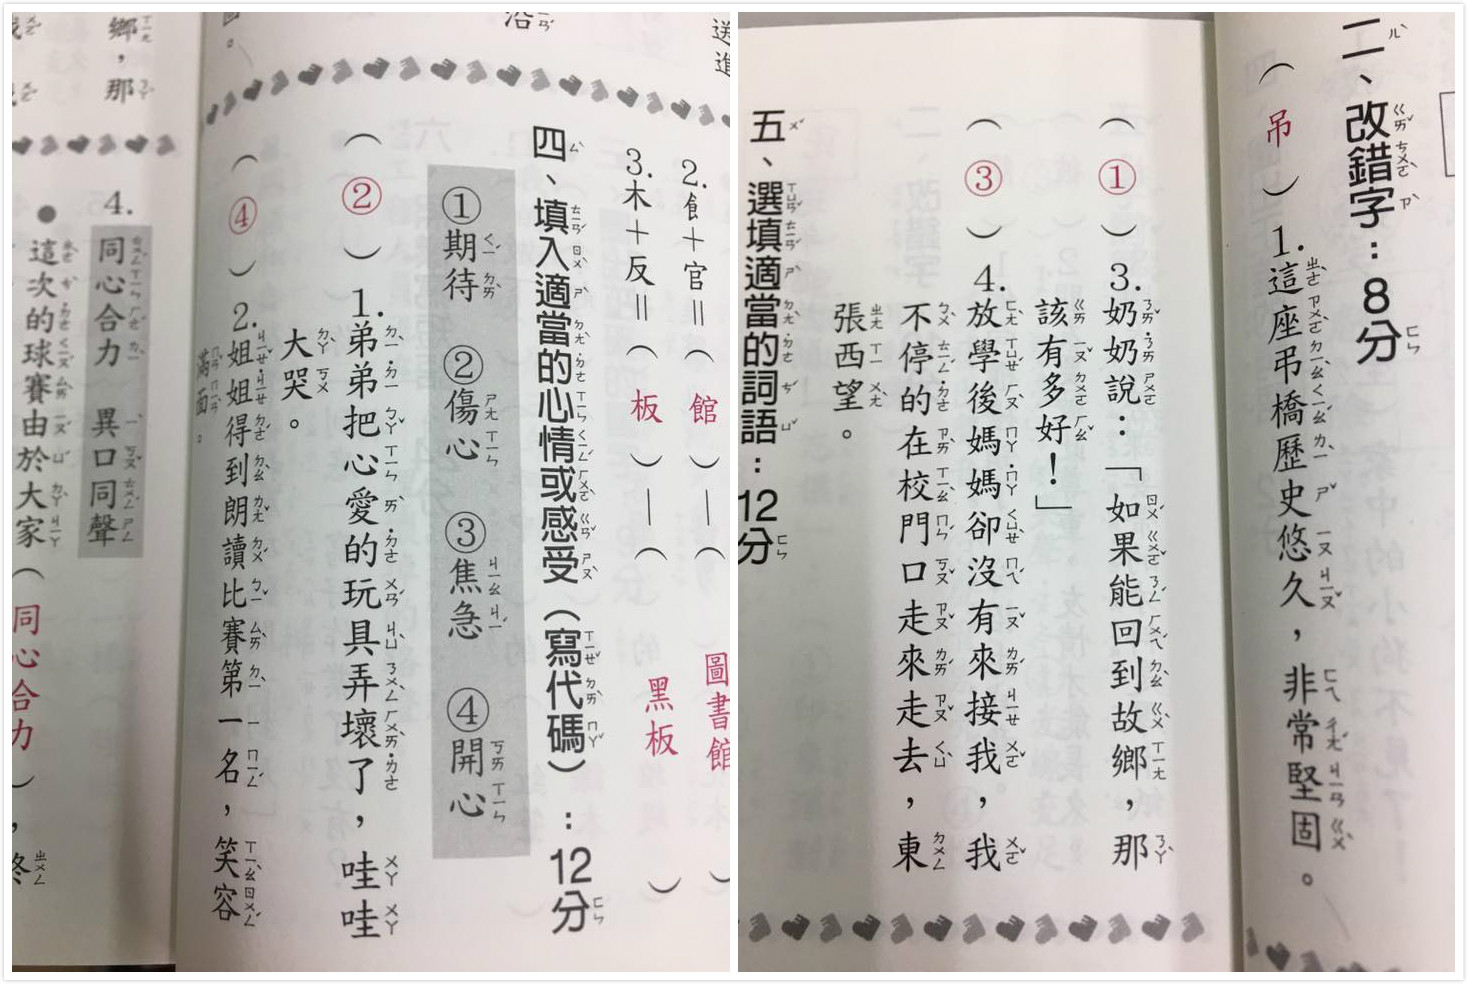 2.飠+官=(館)—(圖書館
3.木+反=(板)—(黑板)
四、填入適當的心情或感受(寫代碼):12分
①期待 ②傷心 ③焦急 ④開心
(②)1.弟弟把心愛的玩具弄壞了,哇哇
大哭。
(④)2.姐姐得到朗讀比賽第一名,笑容
滿面。
鄉,那
4.同心合力 異口同聲
●這次的球賽由於大家(
同心合力),
終
二、改錯字:8分
(吊)1.這座弔橋歷史悠久,非常堅固。
(①)3.奶奶說:「如果能回到故鄉,那
該有多好!」
(③)4.放學後媽媽卻沒有來接我,我
不停的在校門口走來走去,東
張西望。
五、選填適當的詞語:12分